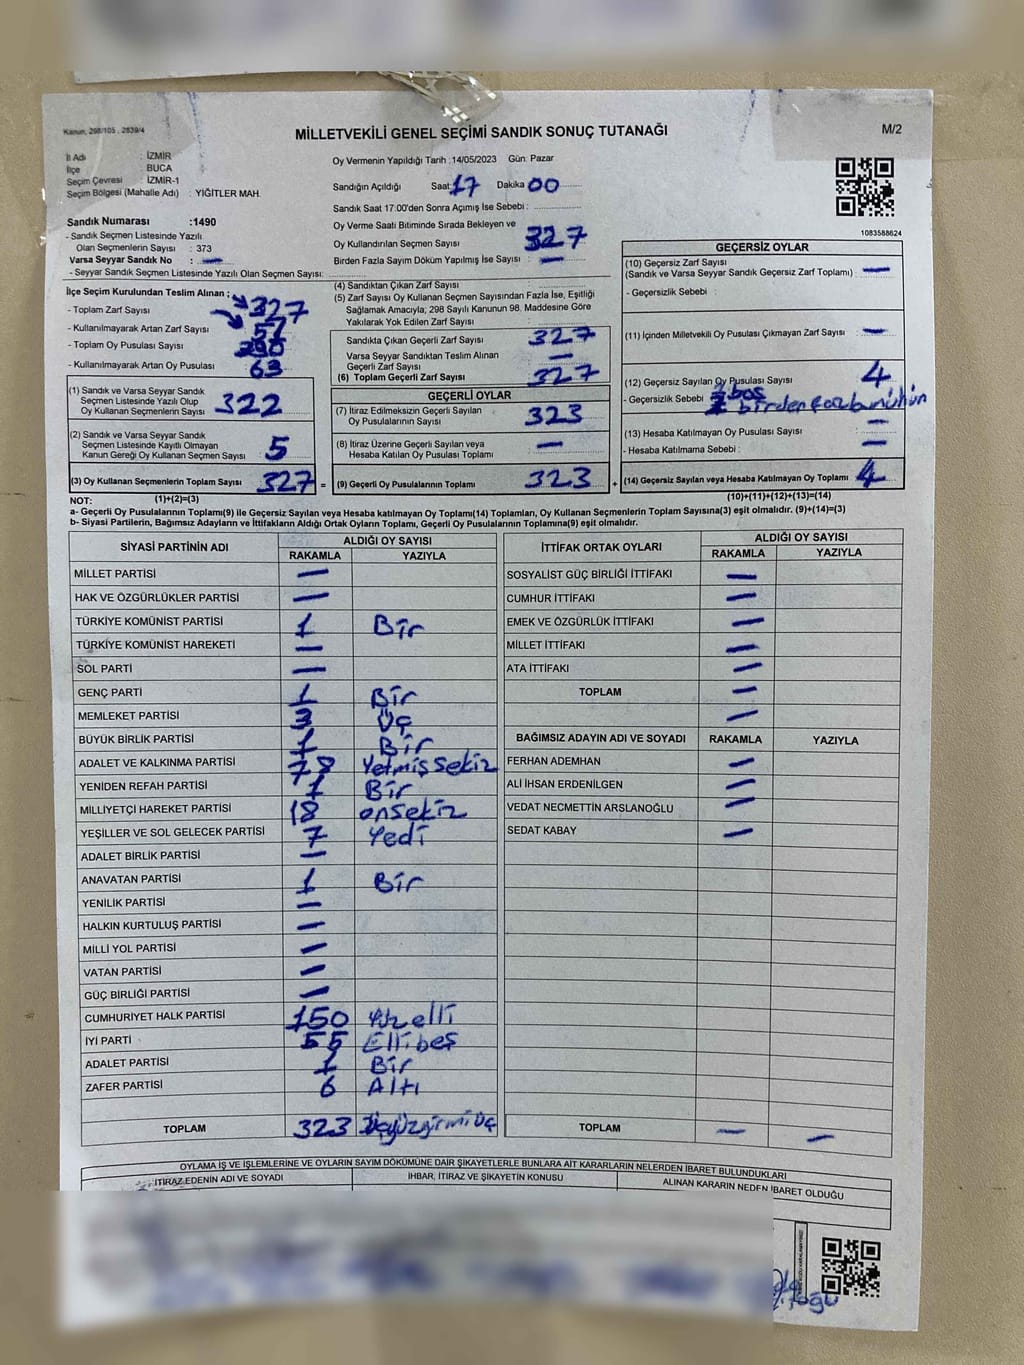 Kanun, 298/105 , 2839/4
MİLLETVEKİLİ GENEL SEÇİMİ SANDIK SONUÇ TUTANAĞI
M/2
İl Adı : İZMİR
İlçe : BUCA
Seçim Çevresi : İZMİR-1
Seçim Bölgesi (Mahalle Adı) : YİĞİTLER MAH.
Sandık Numarası :1490
- Sandık Seçmen Listesinde Yazılı
Olan Seçmenlerin Sayısı : 373
Varsa Seyyar Sandık No : —
- Seyyar Sandık Seçmen Listesinde Yazılı Olan Seçmen Sayısı:
Oy Vermenin Yapıldığı Tarih :14/05/2023 Gün: Pazar
Sandığın Açıldığı Saat 17 Dakika 00
Sandık Saat 17:00'den Sonra Açımış İse Sebebi :
Oy Verme Saati Bitiminde Sırada Bekleyen ve
Oy Kullandırılan Seçmen Sayısı 327
Birden Fazla Sayım Döküm Yapılmış İse Sayısı : —
1083588624
İlçe Seçim Kurulundan Teslim Alınan :
- Toplam Zarf Sayısı 327
- Kullanılmayarak Artan Zarf Sayısı 57
- Toplam Oy Pusulası Sayısı
- Kullanılmayarak Artan Oy Pusulası 63
(1) Sandık ve Varsa Seyyar Sandık
Seçmen Listesinde Yazılı Olup
Oy Kullanan Seçmenlerin Sayısı 322
(2) Sandık ve Varsa Seyyar Sandık
Seçmen Listesinde Kayıtlı Olmayan
Kanun Gereği Oy Kullanan Seçmen Sayısı 5
(3) Oy Kullanan Seçmenlerin Toplam Sayısı 327 =
(4) Sandıktan Çıkan Zarf Sayısı :
(5) Zarf Sayısı Oy Kullanan Seçmen Sayısından Fazla İse, Eşitliği
Sağlamak Amacıyla, 298 Sayılı Kanunun 98. Maddesine Göre
Yakılarak Yok Edilen Zarf Sayısı :
Sandıkta Çıkan Geçerli Zarf Sayısı 327
Varsa Seyyar Sandıktan Teslim Alınan
Geçerli Zarf Sayısı —
(6) Toplam Geçerli Zarf Sayısı 327
GEÇERLİ OYLAR
(7) İtiraz Edilmeksizin Geçerli Sayılan
Oy Pusulalarının Sayısı 323
(8) İtiraz Üzerine Geçerli Sayılan veya
Hesaba Katılan Oy Pusulası Toplamı —
(9) Geçerli Oy Pusulalarının Toplamı 323 +
GEÇERSİZ OYLAR
(10) Geçersiz Zarf Sayısı
(Sandık ve Varsa Seyyar Sandık Geçersiz Zarf Toplamı) : —
- Geçersizlik Sebebi :
(11) İçinden Milletvekili Oy Pusulası Çıkmayan Zarf Sayısı —
(12) Geçersiz Sayılan Oy Pusulası Sayısı 4
- Geçersizlik Sebebi boş
(13) Hesaba Katılmayan Oy Pusulası Sayısı : —
- Hesaba Katılmama Sebebi : —
(14) Geçersiz Sayılan veya Hesaba Katılmayan Oy Toplamı 4
NOT: (1)+(2)=(3)
(10)+(11)+(12)+(13)=(14)
a- Geçerli Oy Pusulalarının Toplamı(9) ile Geçersiz Sayılan veya Hesaba katılmayan Oy Toplamı(14) Toplamları, Oy Kullanan Seçmenlerin Toplam Sayısına(3) eşit olmalıdır. (9)+(14)=(3)
b- Siyasi Partilerin, Bağımsız Adayların ve İttifakların Aldığı Ortak Oyların Toplamı, Geçerli Oy Pusulalarının Toplamına(9) eşit olmalıdır.
SİYASİ PARTİNİN ADI ALDIĞI OY SAYISI
RAKAMLA YAZIYLA
MİLLET PARTİSİ —
HAK VE ÖZGÜRLÜKLER PARTİSİ —
TÜRKİYE KOMÜNİST PARTİSİ 1 Bir
TÜRKİYE KOMÜNİST HAREKETİ —
SOL PARTİ —
GENÇ PARTİ 1 Bir
MEMLEKET PARTİSİ 3 Üç
BÜYÜK BİRLİK PARTİSİ 1 Bir
ADALET VE KALKINMA PARTİSİ 78 Yetmiş sekiz
YENİDEN REFAH PARTİSİ 1 Bir
MİLLİYETÇİ HAREKET PARTİSİ 18 onsekiz
YEŞİLLER VE SOL GELECEK PARTİSİ 7 Yedi
ADALET BİRLİK PARTİSİ —
ANAVATAN PARTİSİ 1 Bir
YENİLİK PARTİSİ —
HALKIN KURTULUŞ PARTİSİ —
MİLLİ YOL PARTİSİ —
VATAN PARTİSİ —
GÜÇ BİRLİĞİ PARTİSİ —
CUMHURİYET HALK PARTİSİ 150 Yüz elli
İYİ PARTİ 55 Elli beş
ADALET PARTİSİ 1 Bir
ZAFER PARTİSİ 6 Altı
TOPLAM 323 Üçyüzyirmi üç
İTTİFAK ORTAK OYLARI ALDIĞI OY SAYISI
RAKAMLA YAZIYLA
SOSYALİST GÜÇ BİRLİĞİ İTTİFAKI —
CUMHUR İTTİFAKI —
EMEK VE ÖZGÜRLÜK İTTİFAKI —
MİLLET İTTİFAKI —
ATA İTTİFAKI —
TOPLAM —
—
BAĞIMSIZ ADAYIN ADI VE SOYADI RAKAMLA YAZIYLA
FERHAN ADEMHAN —
ALİ İHSAN ERDENİLGEN —
VEDAT NECMETTİN ARSLANOĞLU —
SEDAT KABAY —
TOPLAM — —
OYLAMA İŞ VE İŞLEMLERİNE VE OYLARIN SAYIM DÖKÜMÜNE DAİR ŞİKAYETLERLE BUNLARA AİT KARARLARIN NELERDEN İBARET BULUNDUKLARI
İTİRAZ EDENİN ADI VE SOYADI İHBAR, İTİRAZ VE ŞİKAYETİN KONUSU ALINAN KARARIN NEDEN İBARET OLDUĞU